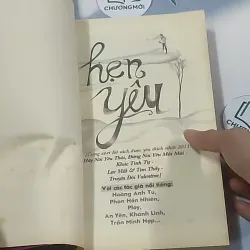 CHƯƠNG MỚI
hẹn
yêu
(Cùng xem lại sách được yêu thích nhất 2013
Hãy Nói Yêu Thôi, Đừng Nói Yêu Mãi Mãi
Khúc Tình Tự -
Lạc Mất & Tìm Thấy -
Truyện Dài Valentine)
Với các tác giả nổi tiếng:
Hoàng Anh Tú,
Phan Hồn Nhiên,
Ploy,
An Yên, Khánh Linh,
Trần Minh Hợp...